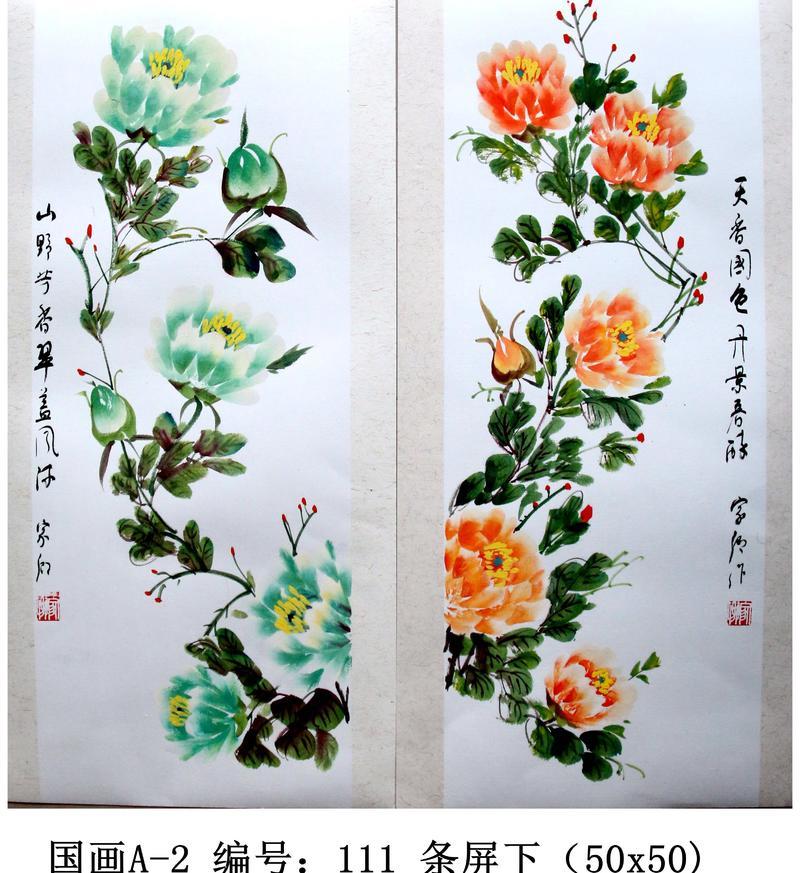 天香国色丹景春酔
家原作
山野芳香翠盖风
国画A-2 编号: 111 条屏下 (50x50)